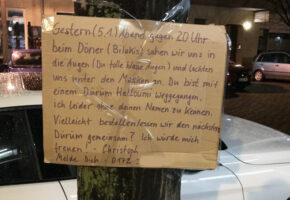 Gestern (5.1) Abend gegen 20 Uhr
beim Döner (Bilakis) sahen wir uns in
die Augen (Du tolle blaue Augen) und lachten
uns unter den Masken an. Du bist mit
einem Dürüm Halloumi weggegangen.
Ich leider ohne deinen Namen zu kennen.
Vielleicht bestellen/essen wir den nächsten
Dürüm gemeinsam? Ich würde mich
freuen - Christoph
Melde Dich